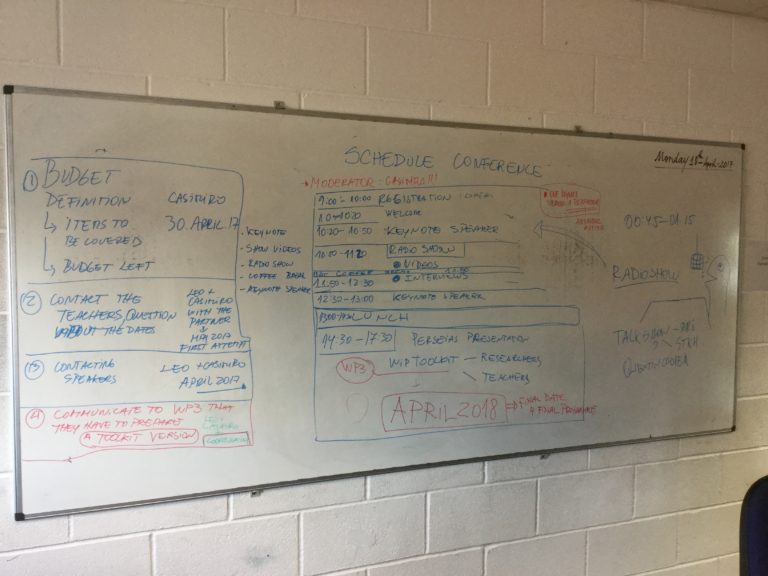 SCHEDULE CONFERENCE
1 BUDGET
DEFINITION CASIMIRO
↳ ITEMS TO 30.APRIL 17
BE COVERED
↳ BUDGET LEFT
2 CONTACT THE
TEACHERS, QUESTION
ABOUT THE DATES
LEO +
CASIMIRO
WITH THE
PARTNER
MAY 2017
FIRST ATTEMPT
3 CONTACTING LEO + CASIMIRO
SPEAKERS APRIL 2017
4 COMMUNICATE TO WP3 THAT
THEY HAVE TO PREPARE
A TOOLKIT VERSION
LEO
CASIMIRO
COORDINATOR
• KEYNOTE
- SHOW VIDEOS
- RADIO SHOW
- COFFEE BREAK
- KEYNOTE SPEAKER
• MODERATOR: CASIMIRO!!!
9:00 - 10:00 REGISTRATION
10 - 10:20 WELCOME
10:20 - 10:50 KEYNOTE SPEAKER
10:50 - 11:20 RADIO SHOW
VIDEOS
COFFEE BREAK
11:50 - 12:30 INTERVIEWS
12:30 - 13:00 KEYNOTE SPEAKER
LUNCH
14:30 - 17:30 PERSEIAS PRESENTATION
WP3 WIP TOOLKIT - RESEARCHERS
- TEACHERS
APRIL 2018 ⇒ FINAL DATE
& FINAL PROGRAMME
Monday 10th April-2017
00:45-01:15
RADIOSHOW
TALKSHOW